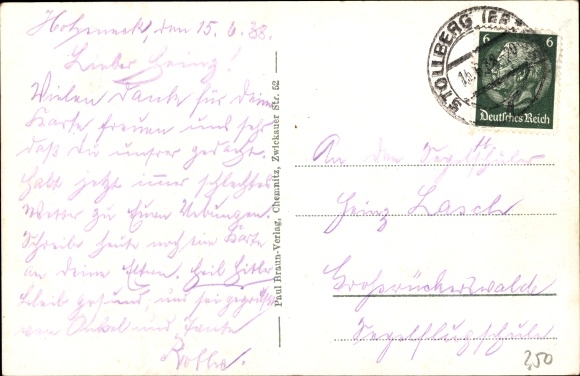 Hoheneck, den 15.6.38.
Lieber Heinz!
Vielen Danke für deine
Karte freuen uns sehr
daß Du unsrer gedacht.
Habt jetzt immer schlechtes
Wetter zu Euren Uebungen.
Schreibe heute noch eine Karte
an deine Eltern. Heil Hitler
bleib gesund, und sei gegrüßt
von Onkel und Tante
Paul Braun-Verlag, Chemnitz, Zwickauer Str. 52
STOLLBERG (ER
6 6
Deutsches Reich
An den Segelschüler
Heinz Lasch
Großrückerswalde
Segelflugschule
2,50